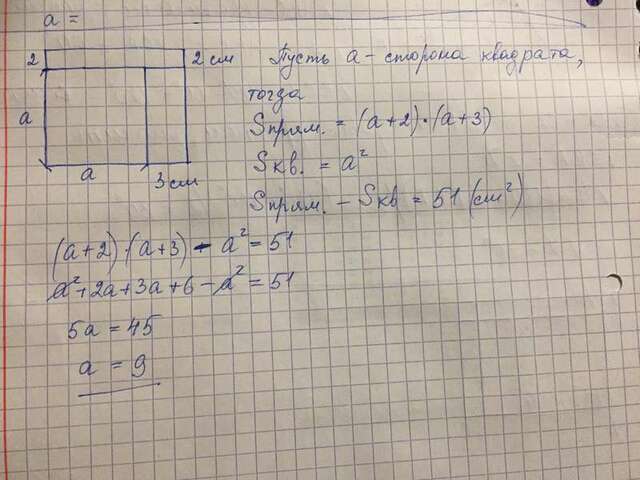 a =
2
2 см
a
a
3 см
Пусть a - сторона квадрата,
тогда
Sпрям. = (a+2)·(a+3)
Sкв. = a²
Sпрям. - Sкв = 51 (см²)
(a+2)·(a+3) - a² = 51
a²+2a+3a+6-a² = 51
5a = 45
a = 9